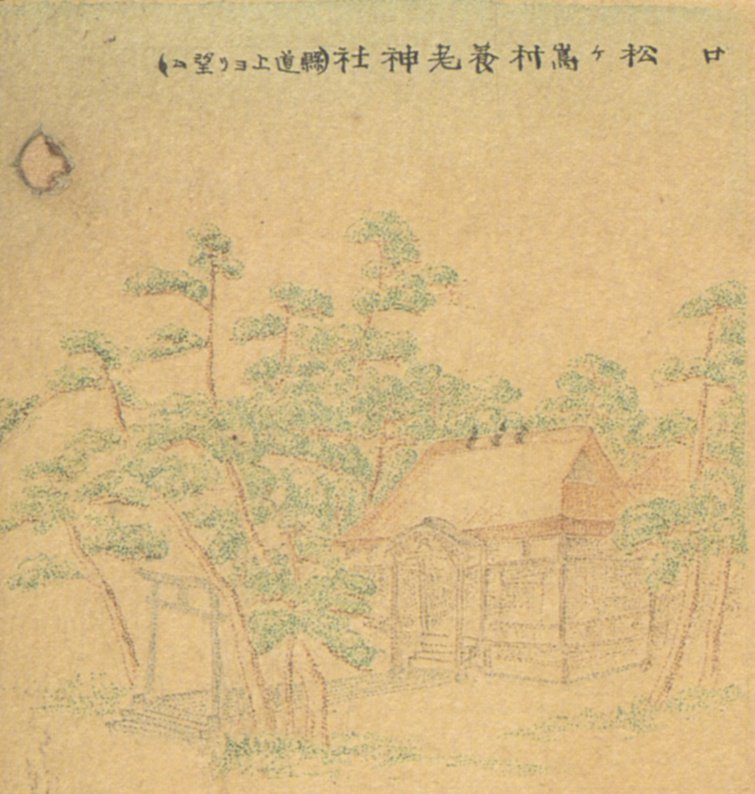 廿 松ヶ嶌村養老神社(縣道上ヨリ望ム)